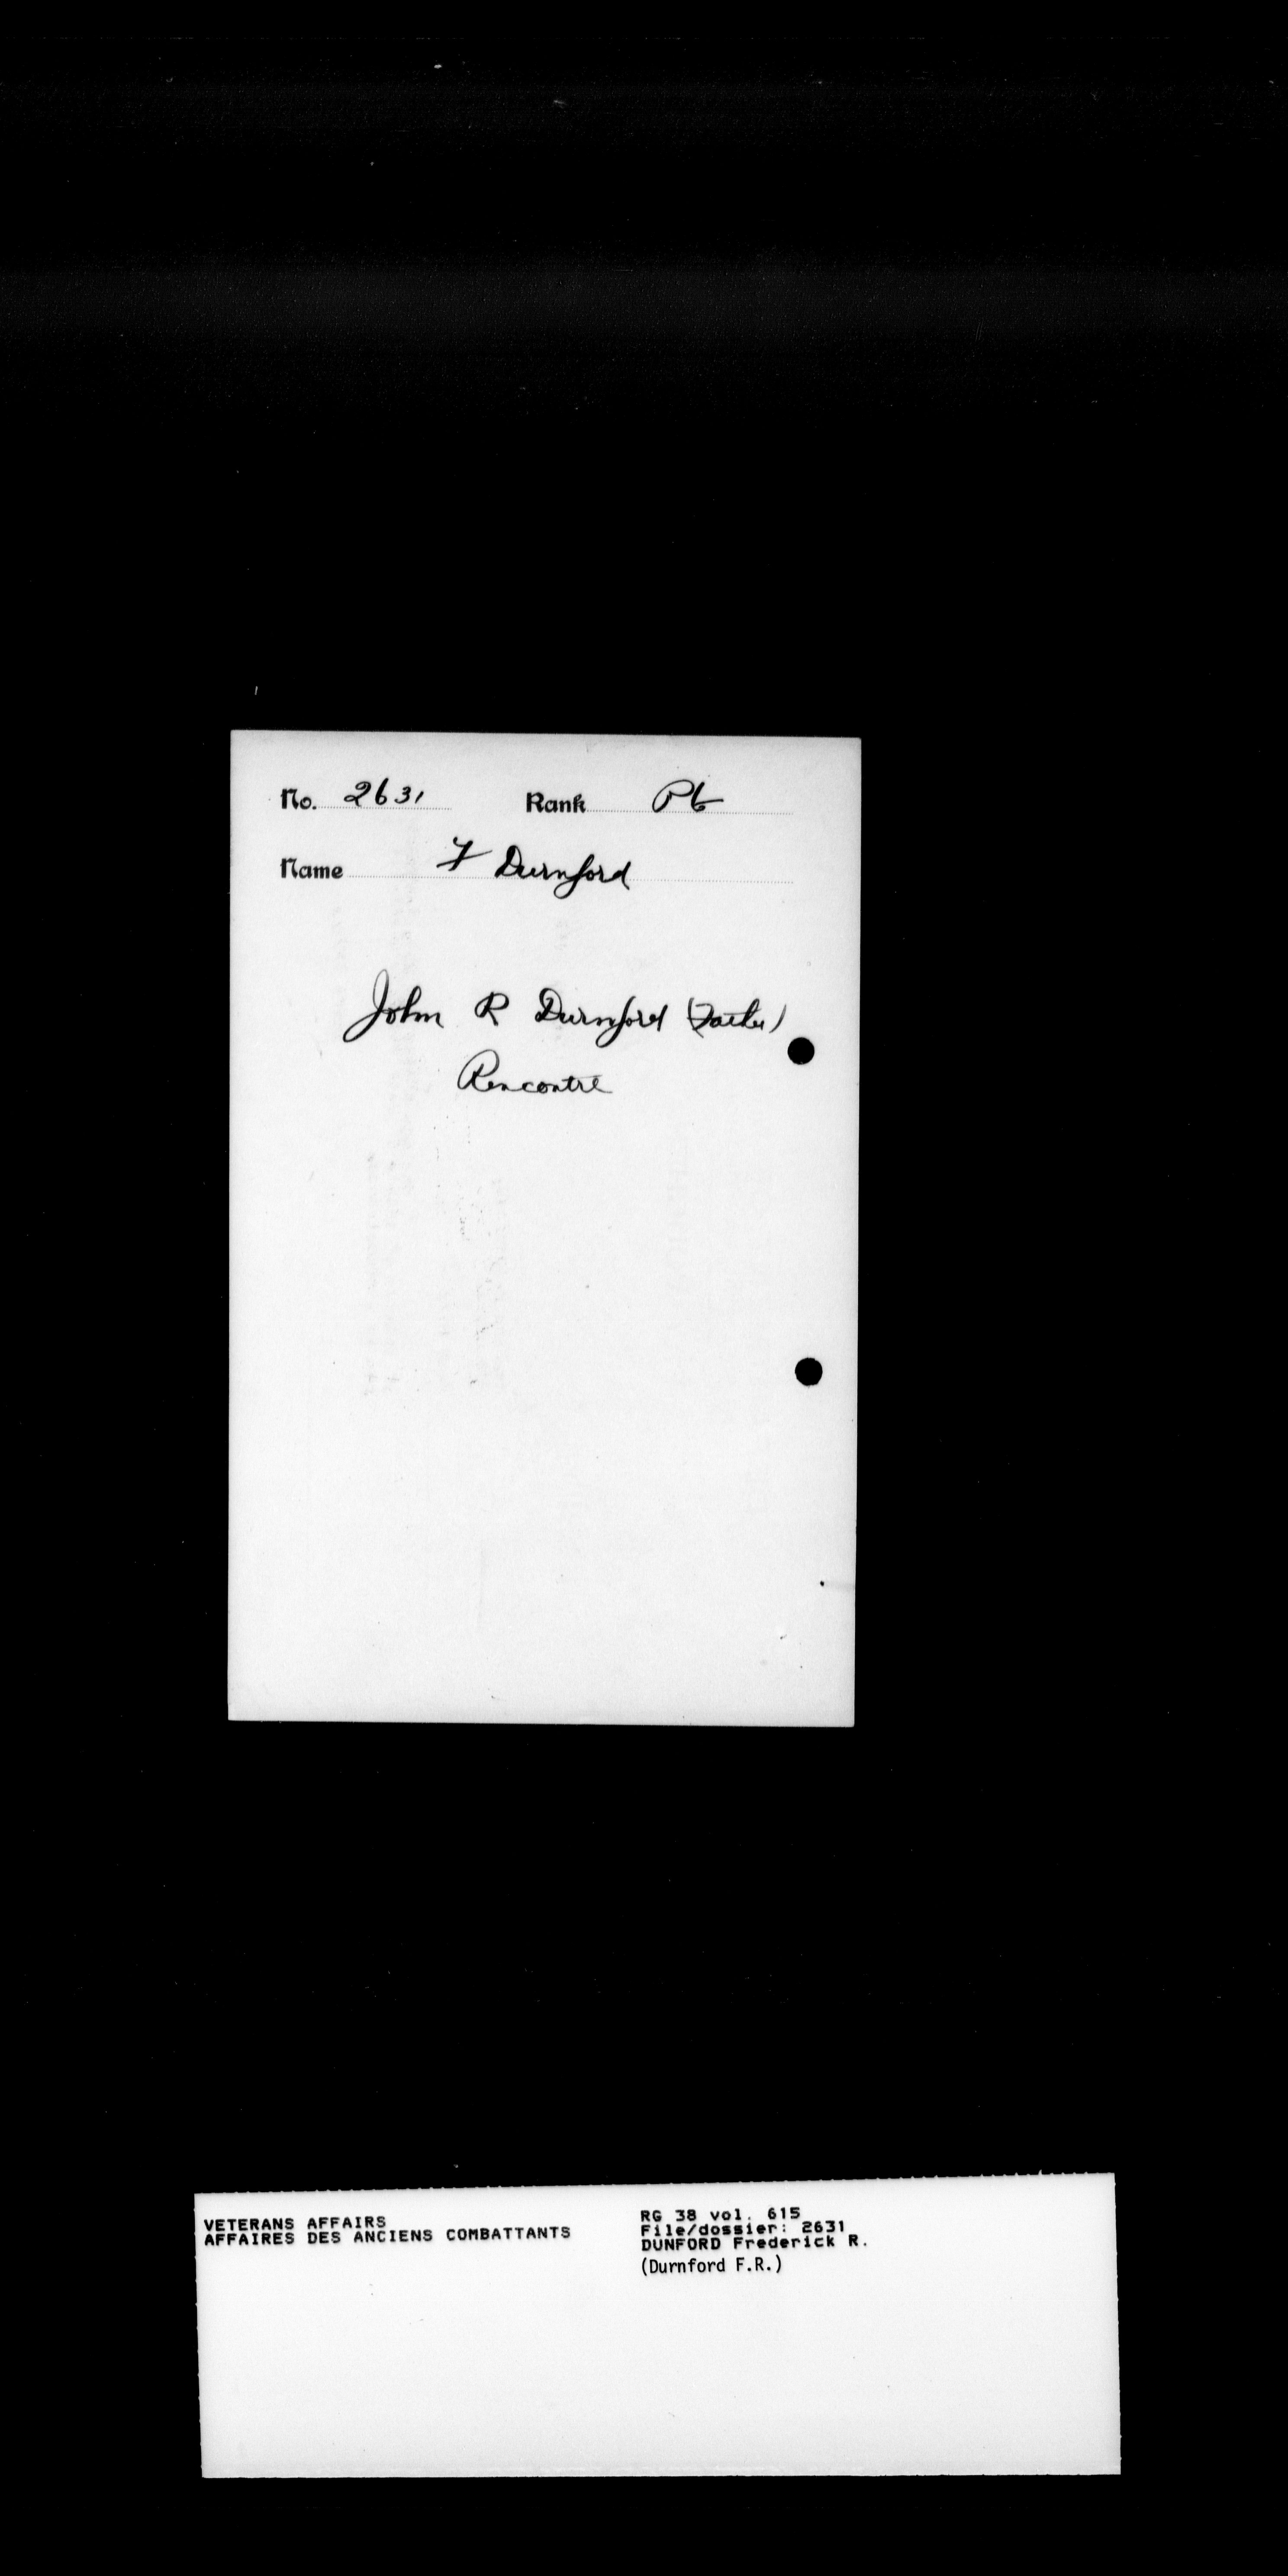 No. 2631 Rank Pt
Name F Durnford
John R Durnford (Father)
Rencontre
VETERANS AFFAIRS
AFFAIRES DES ANCIENS COMBATTANTS
RG 38 vol. 615
File/dossier: 2631
DUNFORD Frederick R.
(Durnford F.R.)